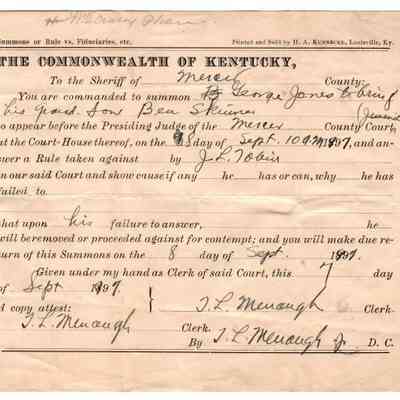 Summons or Rule vs. Fiduciaries, etc. Printed and Sold by H. A. Louisville, Ky.
THE COMMONWEALTH OF KENTUCKY,
To the Sheriff of Mercer County:
You are commanded to summon George Jones to bring
his grand Son Ben Skinner
to appear before the Presiding Judge of the Mercer County Court,
at the Court-House thereof, on the 8 day of Sept. 10 AM 1897, and an-
swer a Rule taken against by J. L. Tobin
in our said Court and show cause if any he has or can, why he has
failed to
that upon his failure to answer, he
will be removed or proceeded against for contempt; and you will make due re-
turn of this Summons on the 8 day of Sept. 1897.
Given under my hand as Clerk of said Court, this 7 day
of Sept 1897.
A copy attest: T. L. Menaugh Clerk.
T. L. Menaugh Clerk.
By T. L. Menaugh Jr. D. C.